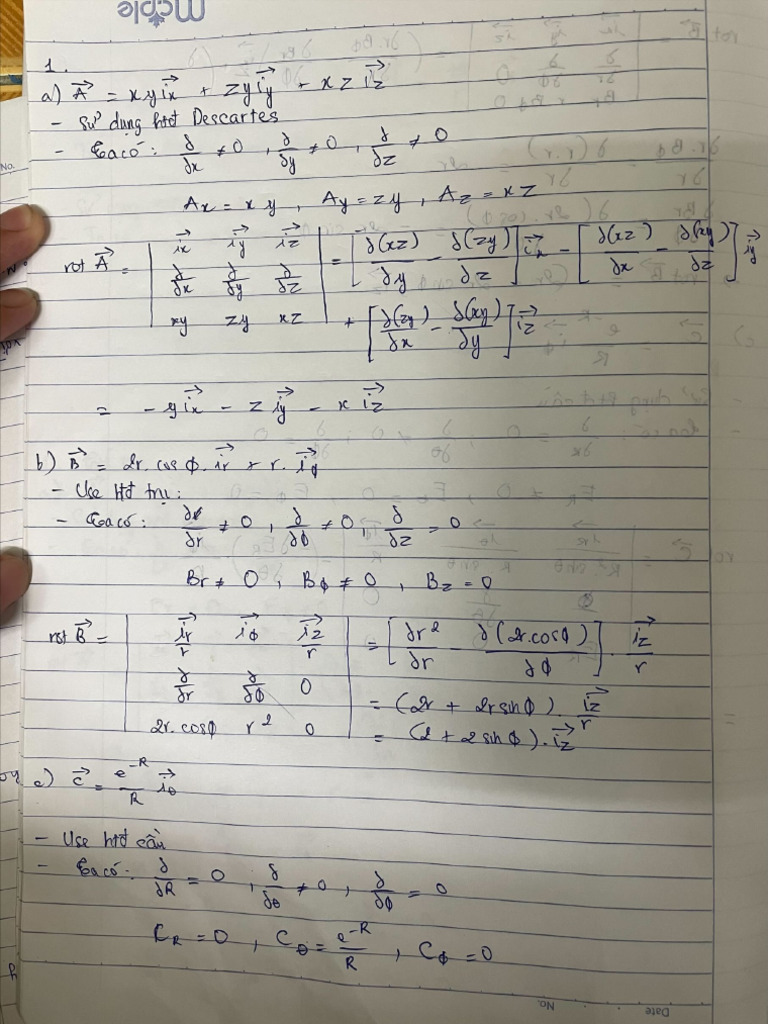 maple
1.
a) A⃗ = xy i⃗x + zy i⃗y + xz i⃗z
- Sử dụng htđ Descartes
- Ta có: ∂/∂x ≠ 0, ∂/∂y ≠ 0, ∂/∂z ≠ 0
Ax = xy, Ay = zy, Az = xz
rot A⃗ = | i⃗x i⃗y i⃗z | = [∂(xz)/∂y - ∂(zy)/∂z] i⃗x - [∂(xz)/∂x - ∂(xy)/∂z] i⃗y
| ∂/∂x ∂/∂y ∂/∂z |
| xy zy xz | + [∂(zy)/∂x - ∂(xy)/∂y] i⃗z
= - y i⃗x - z i⃗y - x i⃗z
b) B⃗ = 2r. cos ϕ. i⃗r + r. i⃗ϕ
- Use htđ trụ:
- Ta có: ∂/∂r ≠ 0, ∂/∂ϕ ≠ 0, ∂/∂z = 0
Br ≠ 0, Bϕ ≠ 0, Bz = 0
rot B⃗ = | i⃗r/r i⃗ϕ i⃗z/r | = [∂r²/∂r - ∂(2r.cosϕ)/∂ϕ]. i⃗z/r
| ∂/∂r ∂/∂ϕ 0 | = (2r + 2r sinϕ). i⃗z/r
| 2r.cosϕ r² 0 | = (2 + 2 sinϕ). i⃗z
c) C⃗ = e^-R/R i⃗θ
- Use htđ cầu
- Ta có: ∂/∂R = 0, ∂/∂θ ≠ 0, ∂/∂ϕ = 0
CR = 0, Cθ = e^-R/R, Cϕ = 0
No.
Date